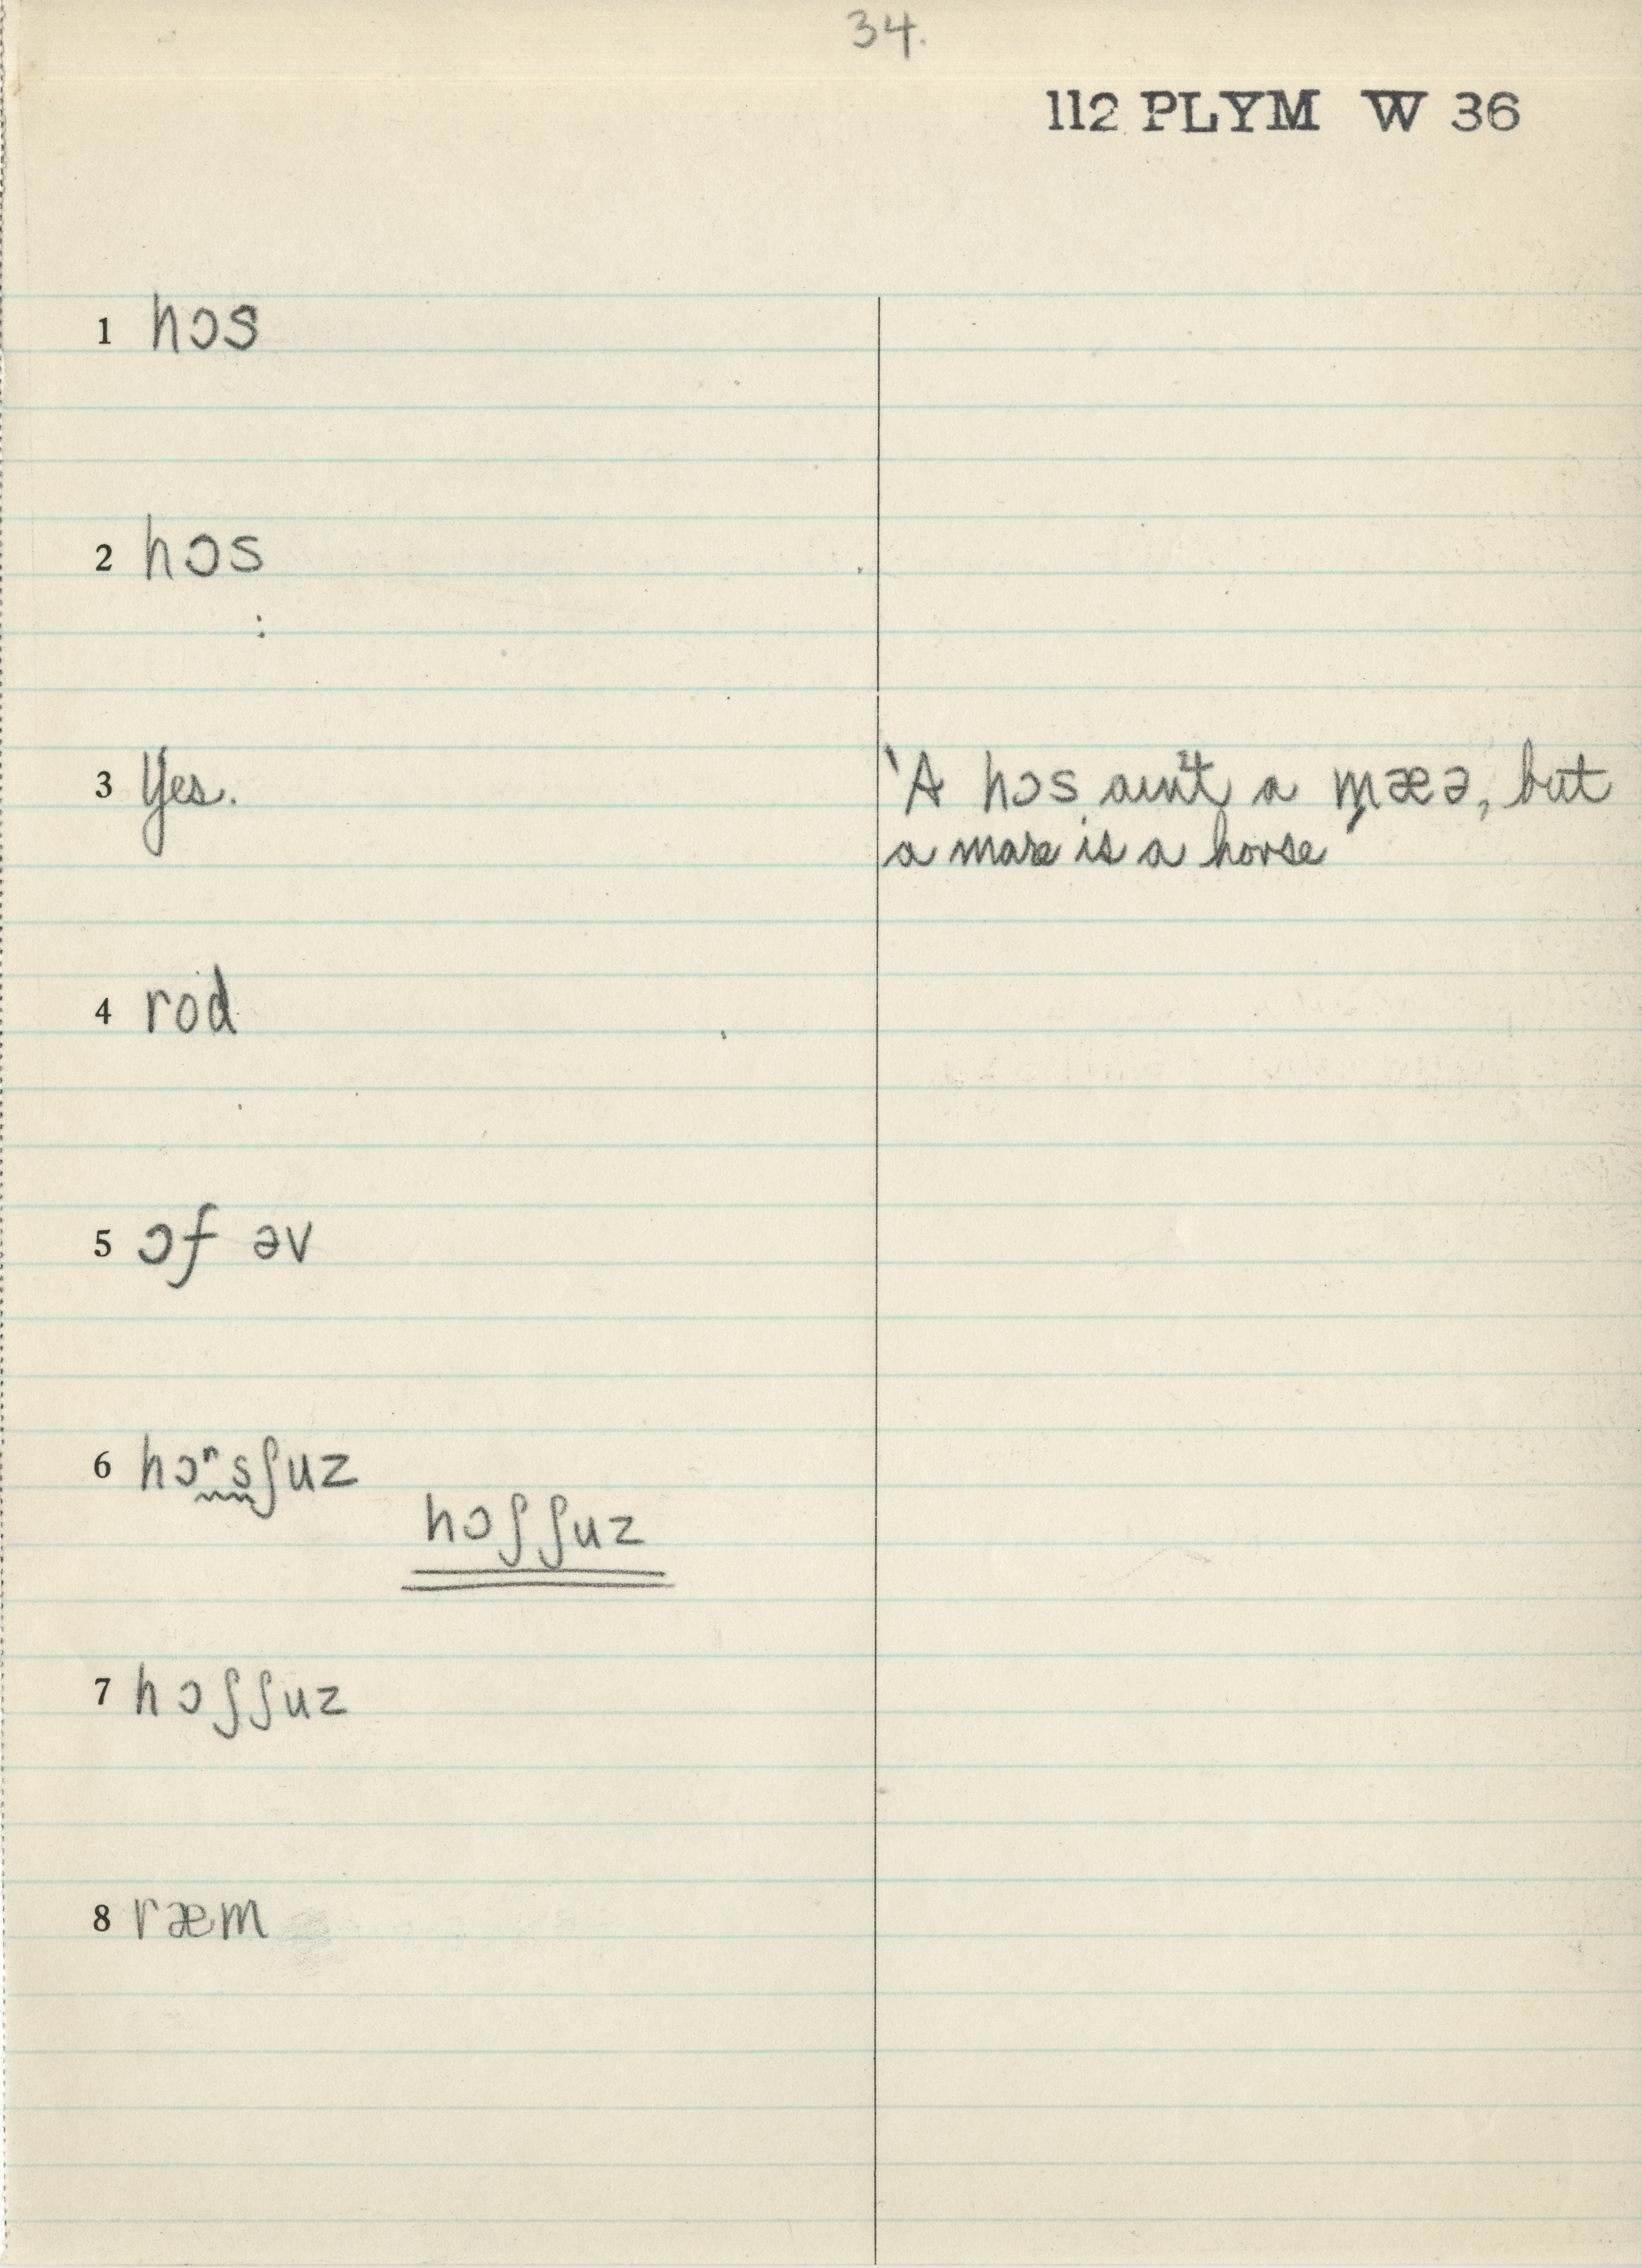 34.
112 PLYM W 36
1 hɔs
2 hɔs
3 Yes.
'A hɔs ain't a mæə, but
a mare is a horse'
4 rod
5 ɔf əv
6 hɔʳsʃuz
hɔʃʃuz
7 hɔʃʃuz
8 ræm